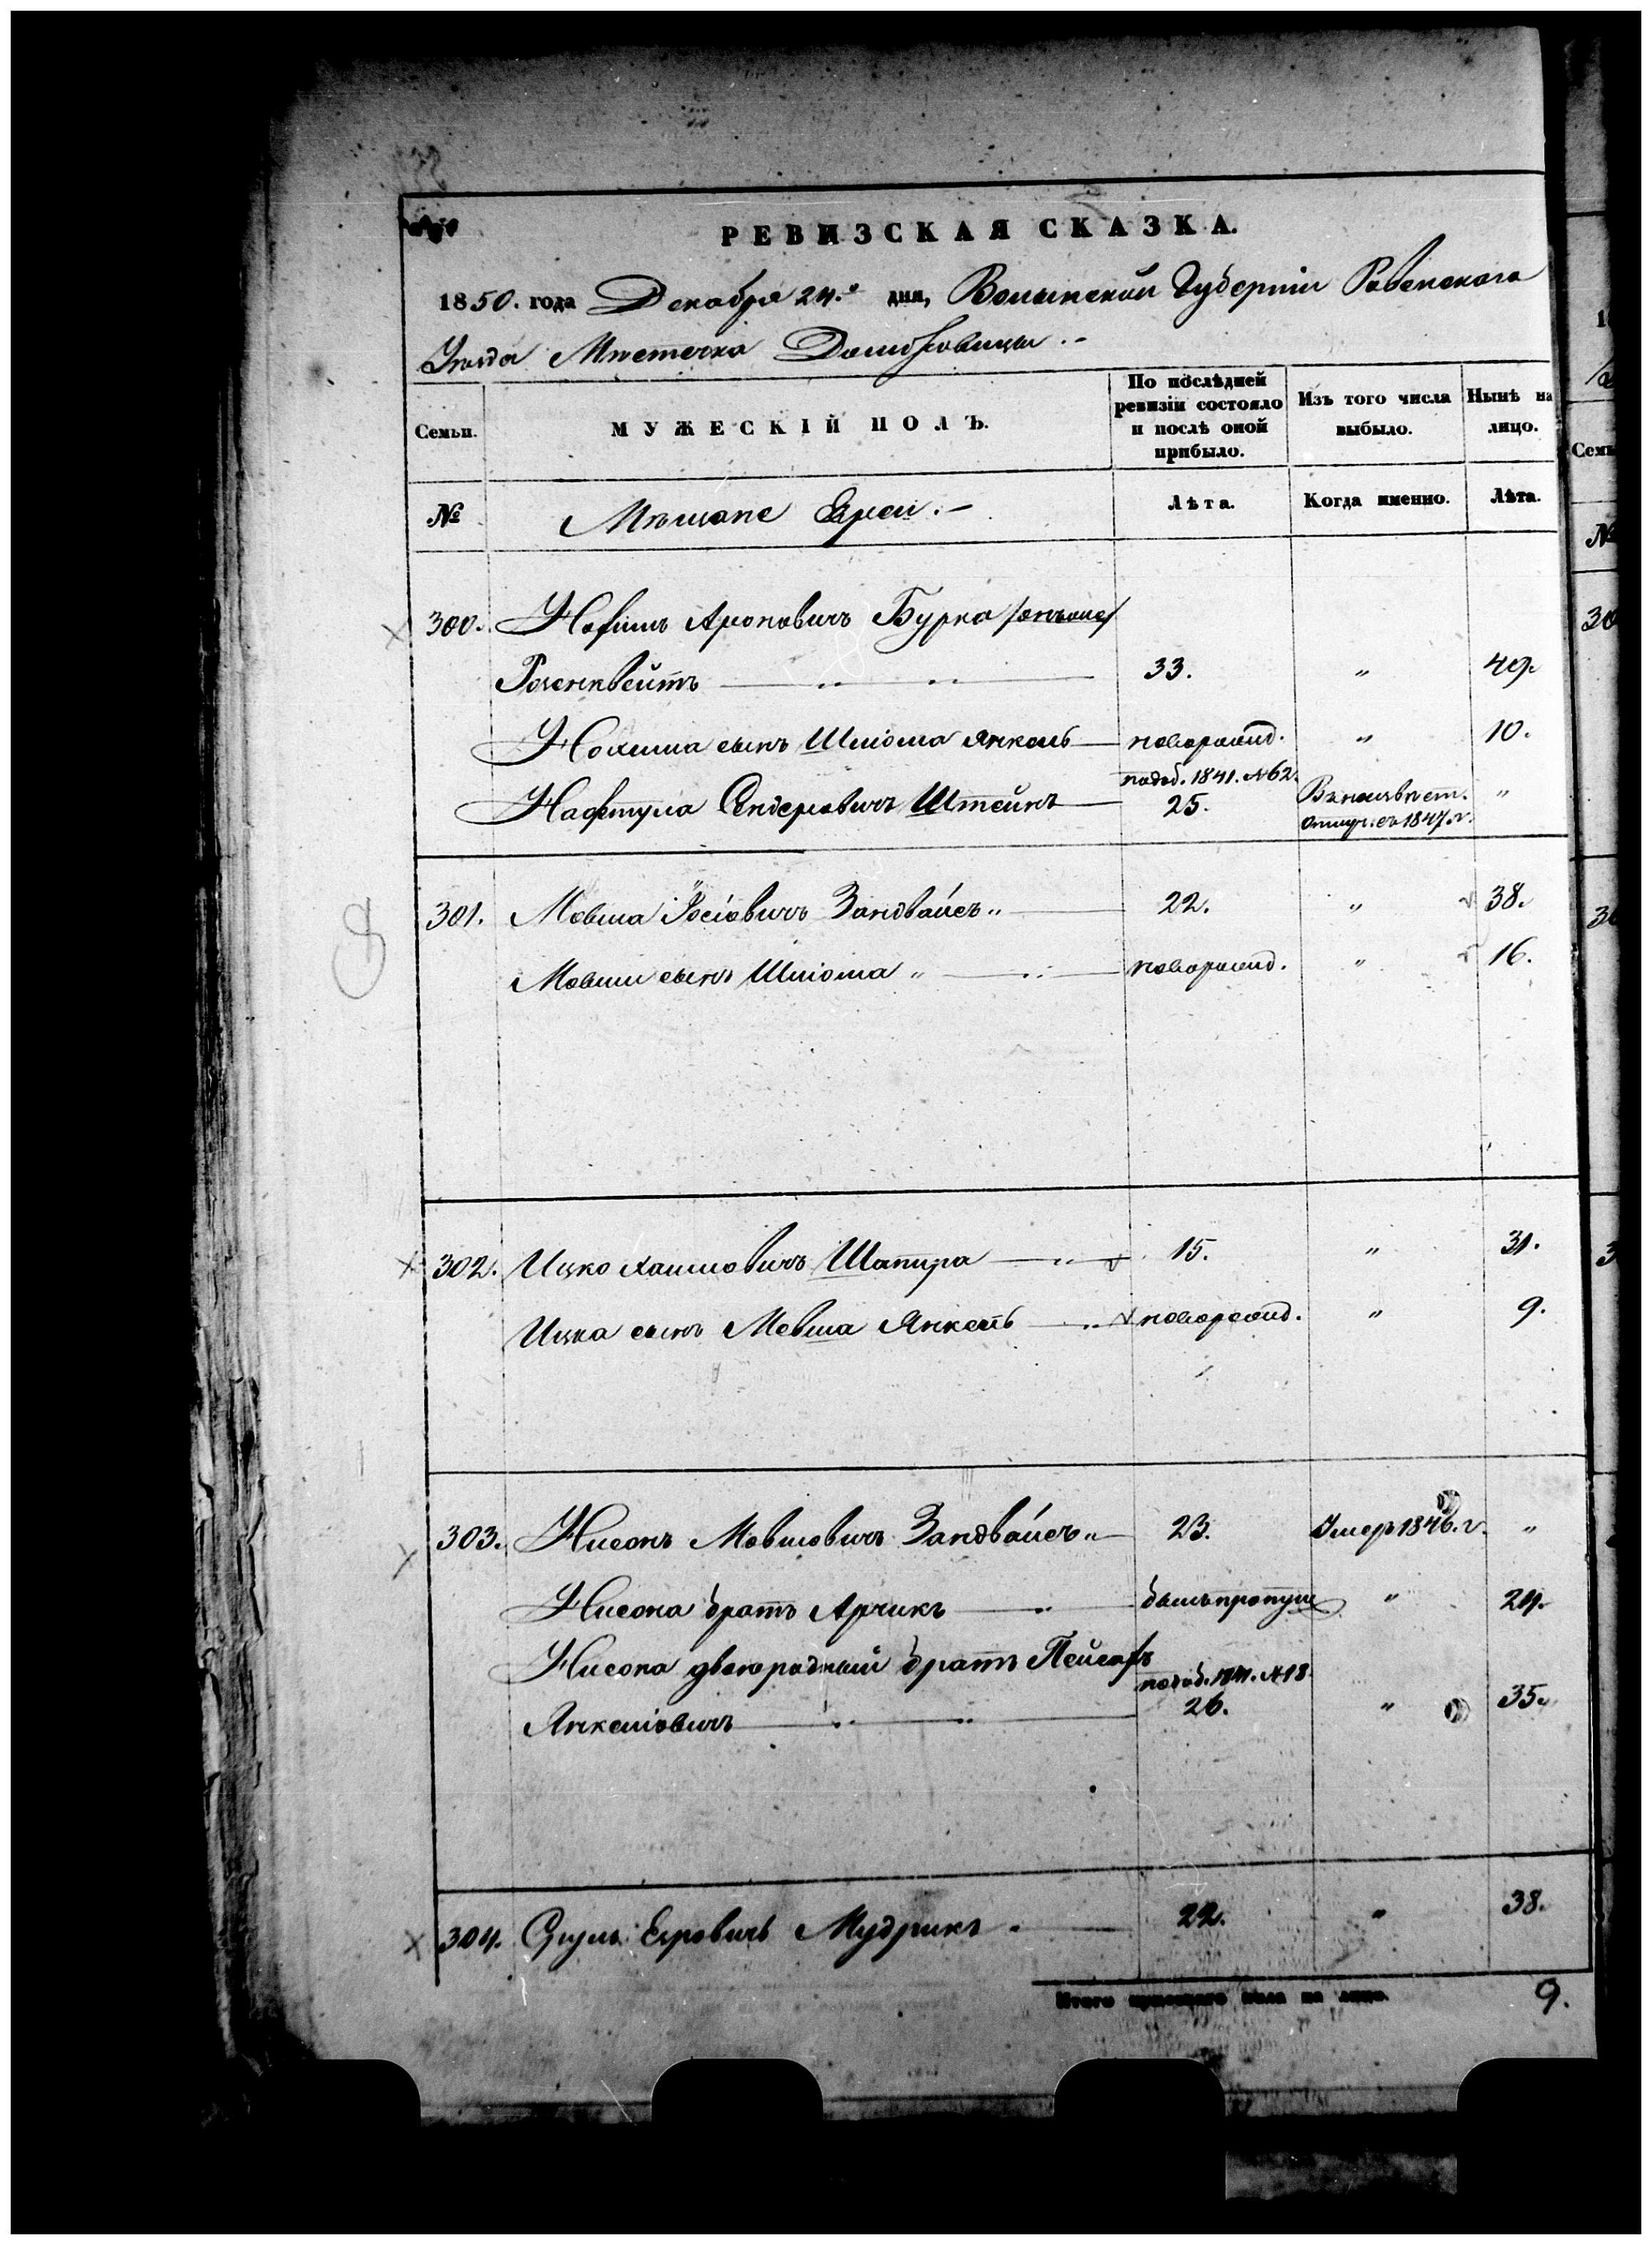 РЕВИЗСКАЯ СКАЗКА.
1850. года Декабря 24.го дня, Волынской Губерніи Ровенскаго
Уѣзда Мѣстечка Домбровицы .-
Семьи.
МУЖЕСКІЙ ПОЛЪ.
По послѣдней ревизіи состояло и послѣ оной прибыло.
Изъ того числа выбыло.
Нынѣ на лицо.
№
Мѣщане Евреи .-
Лѣта.
Когда именно.
Лѣта.
300. Нохимъ Ароновичъ Бурка /онъ же/
Розенквейтъ 33. " 49.
Нохима сынъ Шліома Янкель новорожд. " 10.
Нафтула Сендеровичъ Штейнъ по доб. 1841. №62. 25. Въ неизвѣст. отлуч. съ 1847. г. "
301. Мовша Іосіовичъ Зандвайсъ " 22. " 38.
Мовши сынъ Шліома " новорожд. " 16.
302. Ицко Хаимовичъ Шапира 15. " 31.
Ицка сынъ Мовша Янкель новорожд. " 9.
303. Нисонъ Мовшовичъ Зандвайсъ " 23. Умеръ 1846. г. "
Нисона братъ Арчикъ былъ пропущ " 24.
Нисона двоюродный братъ Пейсахъ
Янкеліовичъ по доб. 1841. №18 26. " 35.
304. Сруль Еровичъ Мудрикъ 22. " 38.
Итого мужескаго пола на лицо. 9.